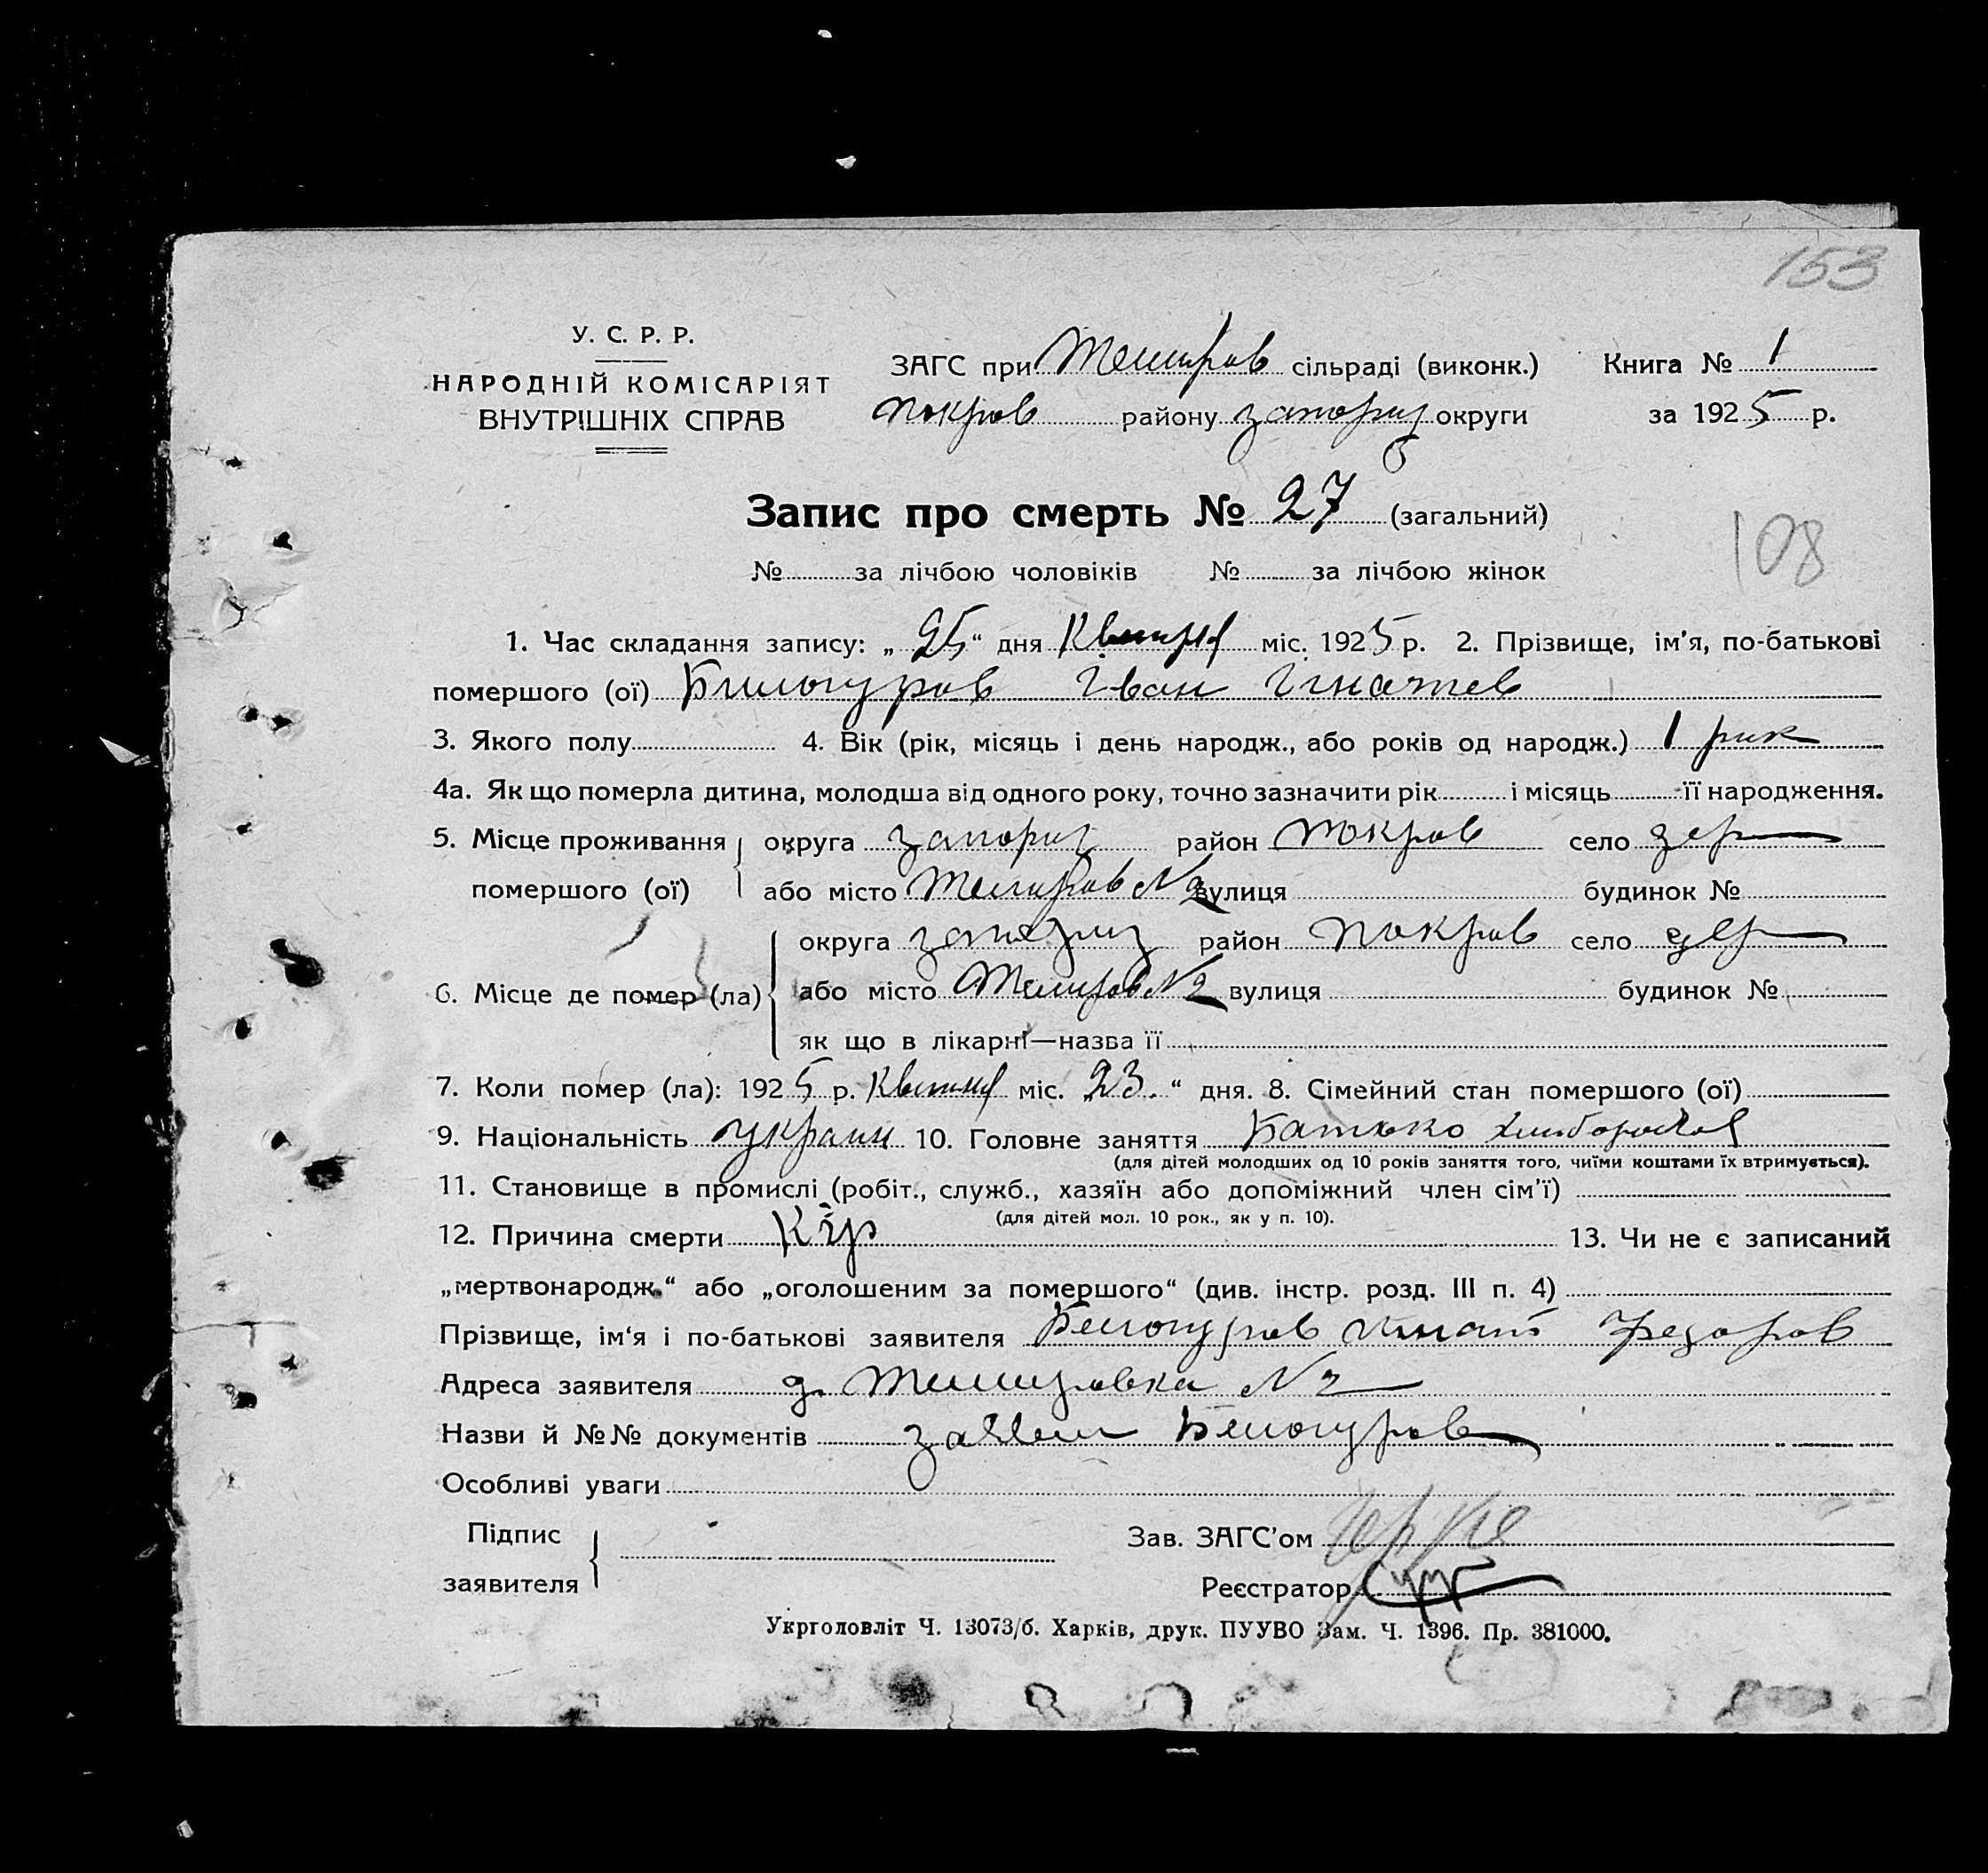 153
У. С. Р. Р.
НАРОДНІЙ КОМІСАРІЯТ
ВНУТРІШНІХ СПРАВ
ЗАГС при Темиров сільраді (виконк.) Книга № 1
Покров району Запориз округи за 1925 р.
Запис про смерть № 27 (загальний)
108
№ за лічбою чоловіків № за лічбою жінок
1. Час складання запису: „25“ дня Квитня міс. 1925 р. 2. Прізвище, ім’я, по-батькові
помершого (ої) Билогуров Іван Ігнатев
3. Якого полу 4. Вік (рік, місяць і день народж., або років од народж.) 1 рик
4а. Як що померла дитина, молодша від одного року, точно зазначити рік і місяць її народження.
5. Місце проживання округа Запориз район Покров село дер
помершого (ої) або місто Темиров №2 вулиця будинок №
округа Запориз район Покров село дер
6. Місце де помер (ла) або місто Темиров №2 вулиця будинок №
як що в лікарні—назва її
7. Коли помер (ла): 1925 р. Квитня міс. „23.“ дня. 8. Сімейний стан помершого (ої)
9. Національність украин 10. Головне заняття Батько
(для дітей молодших од 10 років заняття того, чиїми коштами їх втримується).
11. Становище в промислі (робіт., служб., хазяїн або допоміжний член сім’ї)
(для дітей мол. 10 рок., як у п. 10).
12. Причина смерти Кір 13. Чи не є записаний
„мертвонародж.“ або „оголошеним за помершого“ (див. інстр. розд. III п. 4)
Прізвище, ім‘я і по-батькові заявителя Белогуров Игнат Федоров
Адреса заявителя д. Темировка №2
Назви й №№ документів Белогуров
Особливі уваги
Підпис
заявителя
Зав. ЗАГС’ом
Реєстратор
Укрголовліт Ч. 13073/б. Харків, друк. ПУУВО Зам. Ч. 1396. Пр. 381000.